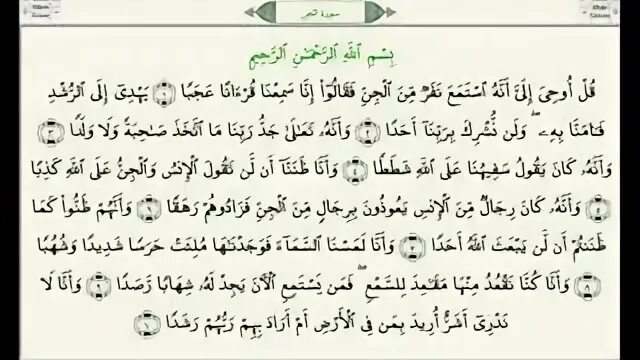 بِسْمِ ٱللَّهِ ٱلرَّحْمَٰنِ ٱلرَّحِيمِ
قُلْ أُوحِىَ إِلَىَّ أَنَّهُ ٱسْتَمَعَ نَفَرٌ مِّنَ ٱلْجِنِّ فَقَالُوٓا۟ إِنَّا سَمِعْنَا قُرْءَانًا عَجَبًا ۝١ يَهْدِىٓ إِلَى ٱلرُّشْدِ
فَـَٔامَنَّا بِهِۦ ۖ وَلَن نُّشْرِكَ بِرَبِّنَآ أَحَدًا ۝٢ وَأَنَّهُۥ تَعَٰلَىٰ جَدُّ رَبِّنَا مَا ٱتَّخَذَ صَٰحِبَةً وَلَا وَلَدًا ۝٣
وَأَنَّهُۥ كَانَ يَقُولُ سَفِيهُنَا عَلَى ٱللَّهِ شَطَطًا ۝٤ وَأَنَّا ظَنَنَّآ أَن لَّن تَقُولَ ٱلْإِنسُ وَٱلْجِنُّ عَلَى ٱللَّهِ كَذِبًا
۝٥ وَأَنَّهُۥ كَانَ رِجَالٌ مِّنَ ٱلْإِنسِ يَعُوذُونَ بِرِجَالٍ مِّنَ ٱلْجِنِّ فَزَادُوهُمْ رَهَقًا ۝٦ وَأَنَّهُمْ ظَنُّوا۟ كَمَا
ظَنَنتُمْ أَن لَّن يَبْعَثَ ٱللَّهُ أَحَدًا ۝٧ وَأَنَّا لَمَسْنَا ٱلسَّمَآءَ فَوَجَدْنَٰهَا مُلِئَتْ حَرَسًا شَدِيدًا وَشُهُبًا
۝٨ وَأَنَّا كُنَّا نَقْعُدُ مِنْهَا مَقَٰعِدَ لِلسَّمْعِ ۖ فَمَن يَسْتَمِعِ ٱلْـَٔانَ يَجِدْ لَهُۥ شِهَابًا رَّصَدًا ۝٩ وَأَنَّا لَا
نَدْرِىٓ أَشَرٌّ أُرِيدَ بِمَن فِى ٱلْأَرْضِ أَمْ أَرَادَ بِهِمْ رَبُّهُمْ رَشَدًا ۝١٠